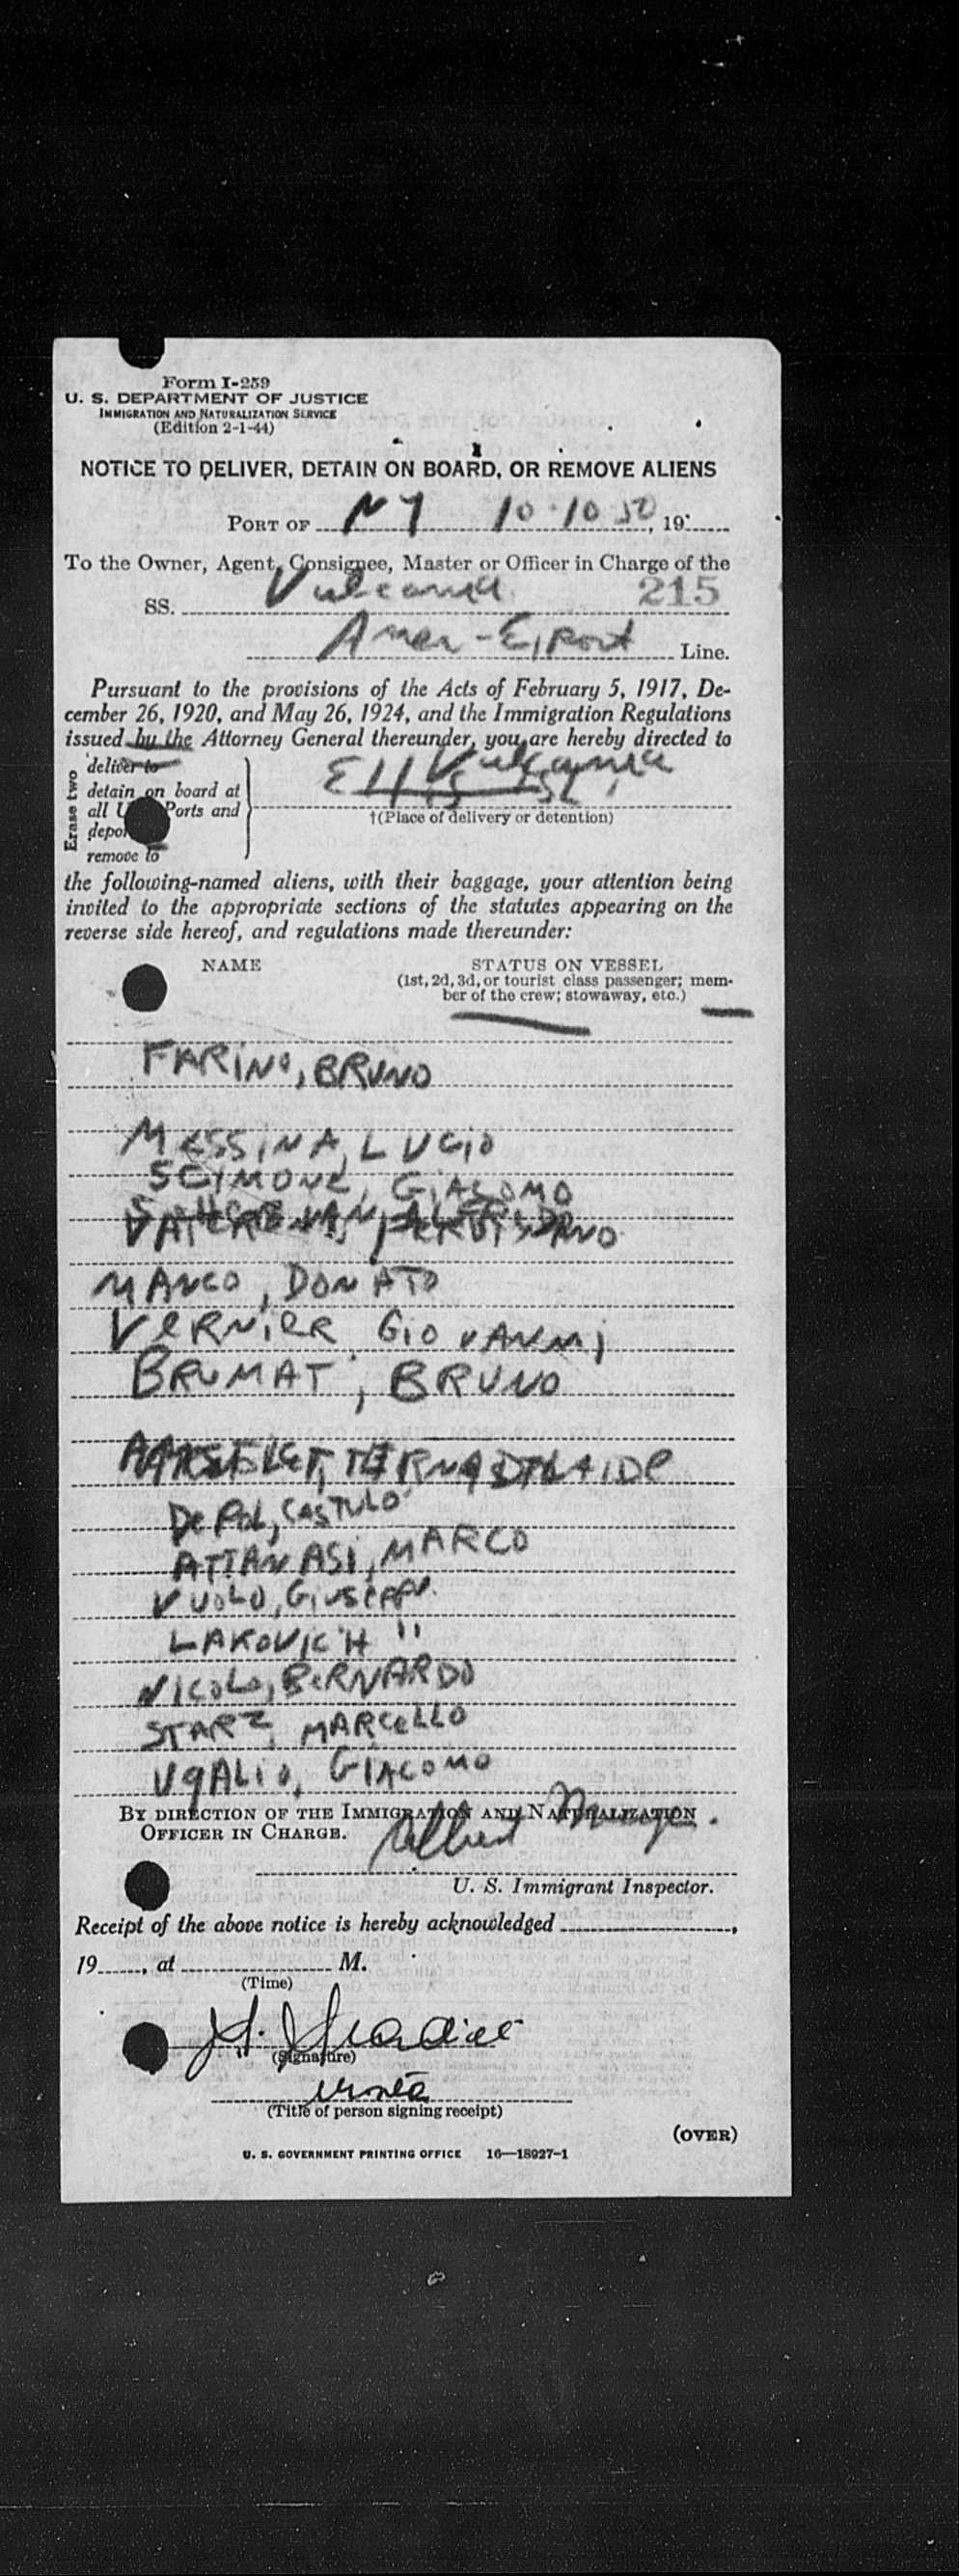 Form I-259
U. S. DEPARTMENT OF JUSTICE
IMMIGRATION AND NATURALIZATION SERVICE
(Edition 2-1-44)
NOTICE TO DELIVER, DETAIN ON BOARD, OR REMOVE ALIENS
PORT OF NY 10-10 50, 19
To the Owner, Agent, Consignee, Master or Officer in Charge of the
SS. Vulcania 215
Amer-Export Line.
Pursuant to the provisions of the Acts of February 5, 1917, De-
cember 26, 1920, and May 26, 1924, and the Immigration Regulations
issued by the Attorney General thereunder, you are hereby directed to
Erase two
deliver to
detain on board at
all Ports and
remove to
Vulcania
†(Place of delivery or detention)
the following-named aliens, with their baggage, your attention being
invited to the appropriate sections of the statutes appearing on the
reverse side hereof, and regulations made thereunder:
NAME STATUS ON VESSEL
(1st, 2d, 3d, or tourist class passenger; mem-
ber of the crew; stowaway, etc.)
FARINO, BRUNO
MESSINA, LUCIO
SCIMONE, GIACOMO
MANCO, DONATO
VERNIER GIOVANNI
BRUMAT, BRUNO
De POL, CASTULO
ATTANASI, MARCO
VUOLO, GIUSEPPE
LAKOVICH "
NICOLO, BERNARDO
STARZ, MARCELLO
UGALIO, GIACOMO
BY DIRECTION OF THE IMMIGRATION AND NATURALIZATION
OFFICER IN CHARGE.
Albert
U. S. Immigrant Inspector.
Receipt of the above notice is hereby acknowledged
19 , at M.
(Time)
(Signature)
(Title of person signing receipt)
(OVER)
U. S. GOVERNMENT PRINTING OFFICE 16—18927-1